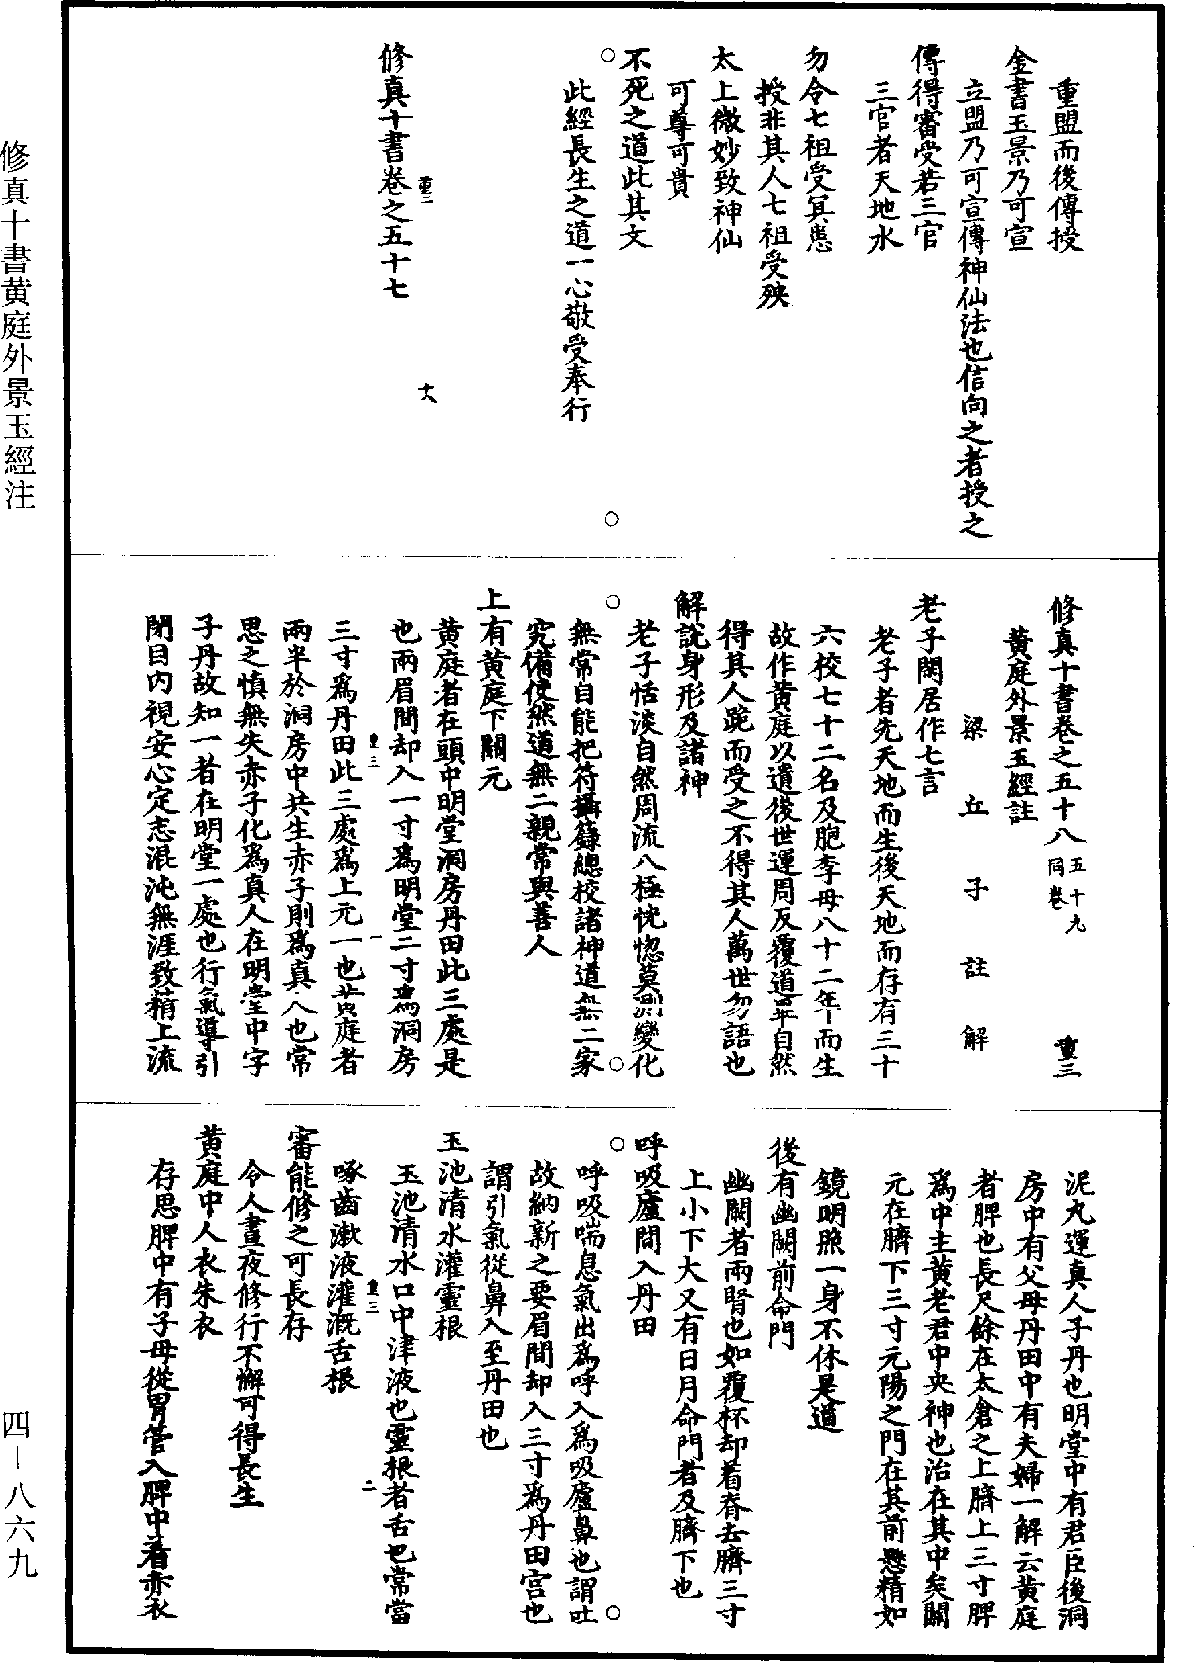 重盟而後傳授
金書玉景乃可宣
立盟乃可宣傳神仙法也信向之者授之
傳得審受若三官
三官者天地水
勿令七祖受冥患
授非其人七祖受殃
太上微妙致神仙
可尊可貴
不死之道此其文
此經長生之道一心敬受奉行
修真十書卷之五十七
重二
十八
修真十書卷之五十八 五十九同卷 重三
黃庭外景玉經註
梁丘子註解
老子閑居作七言
老子者先天地而生後天地而存有三十
六校七十二名及胞李母八十二年而生
故作黃庭以遺後世運周反覆道畢自然
得其人跪而受之不得其人萬世勿語也
解說身形及諸神
老子恬淡自然周流八極恍惚莫測變化
無常自能把符攝籙總校諸神道無二家
究備使然道無二親常與善人
上有黃庭下關元
黃庭者在頭中明堂洞房丹田此三處是
也兩眉間却入一寸爲明堂二寸爲洞房
重三
一
三寸爲丹田此三處爲上元一也黃庭者
兩半於洞房中共生赤子則爲真人也常
思之慎無失赤子化爲真人在明堂中字
子丹故知一者在明堂一處也行氣導引
閉目內視安心定志混沌無涯致精上流
泥丸運真人子丹也明堂中有君臣後洞
房中有父母丹田中有夫婦一解云黃庭
者脾也長尺餘在太倉之上臍上三寸脾
爲中主黃老君中央神也治在其中矣關
元在臍下三寸元陽之門在其前懸精如
鏡明照一身不休是道
後有幽闕前命門
幽闕者兩腎也如覆杯却着脊去臍三寸
上小下大又有日月命門者及臍下也
呼吸廬間入丹田
呼吸喘息氣出爲呼入爲吸廬鼻也謂吐
故納新之要眉間却入三寸爲丹田宮也
謂引氣從鼻入至丹田也
玉池清水灌靈根
玉池清水口中津液也靈根者舌也常當
重三
二
啄齒漱液灌溉舌根
審能修之可長存
令人晝夜修行不懈可得長生
黃庭中人衣朱衣
存思脾中有子母從胃管入脾中着赤衣
修真十書黃庭外景玉經注
四—八六九